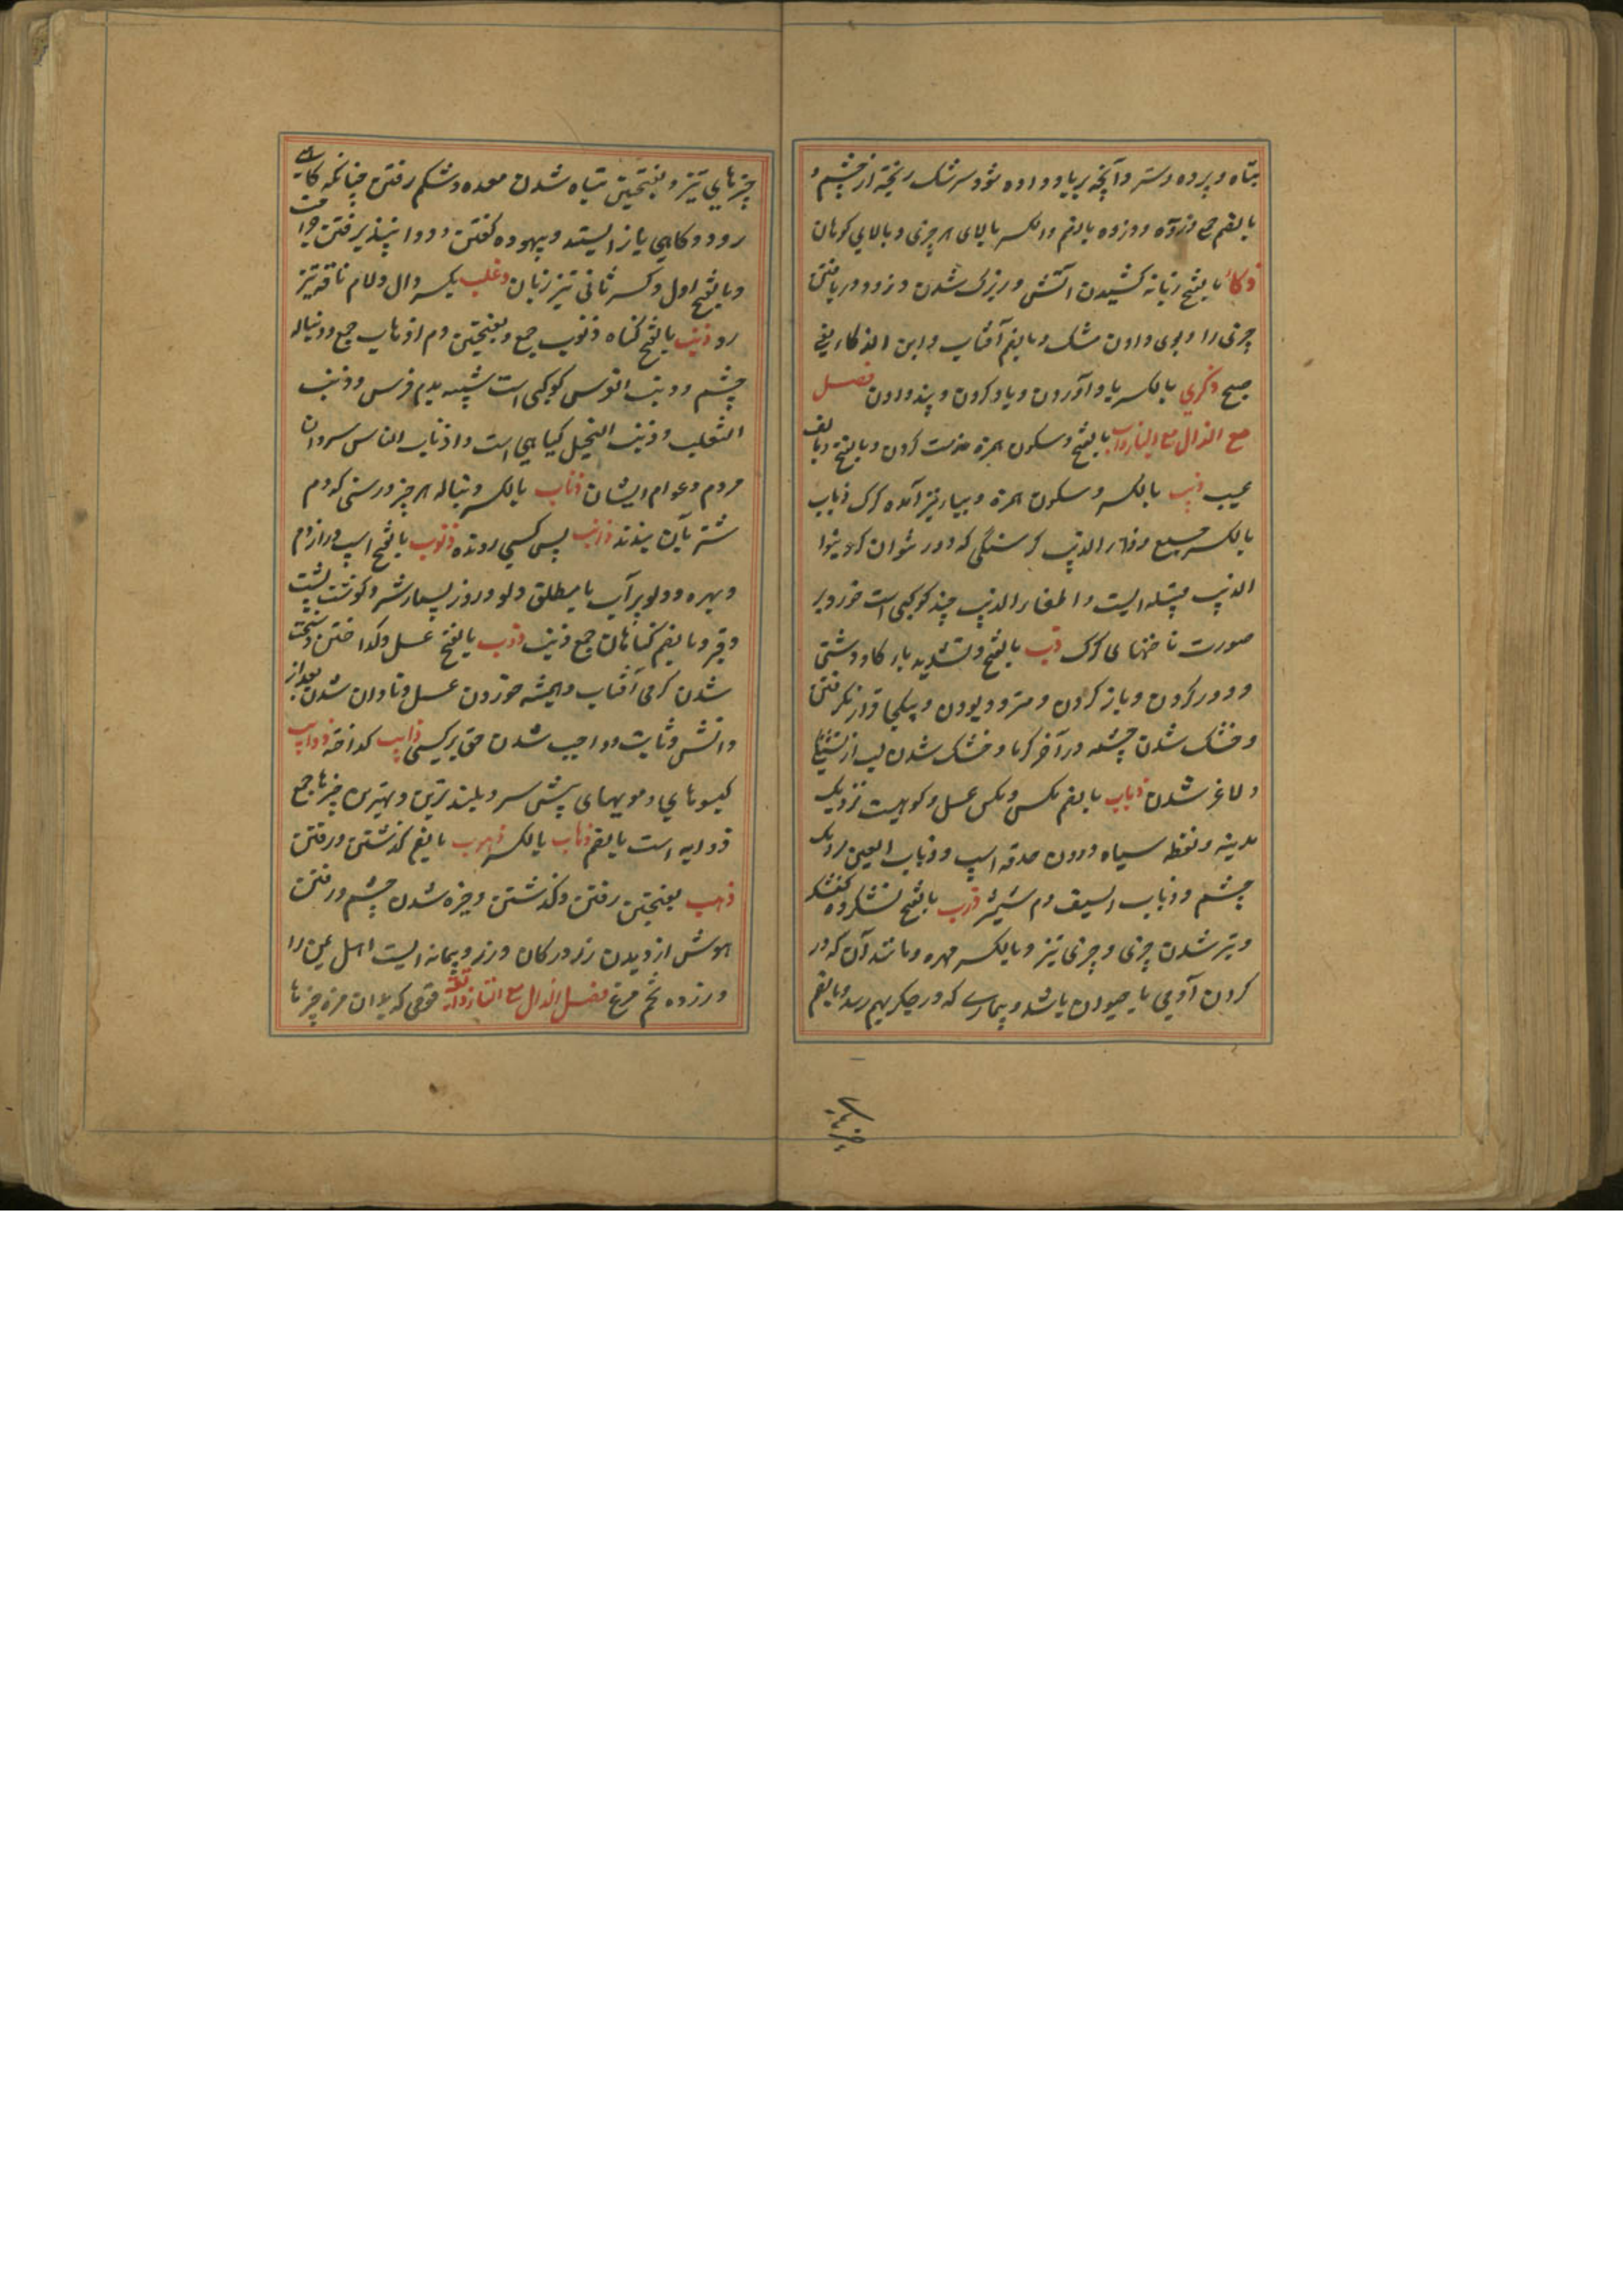 پناه و پرده و ستر و آنچه بر باد داده شود و سرشک ریخته از چشم و
بالضم جمع ذروه و ذروه بالضم و الکسر بالای هر چیزی و بالای کوهان
ذکاء بالفتح زبانه کشیدن آتش و زیرک شدن و زود دریافتن
چیزی را و بوی دادن مشک و بالضم آفتاب و ابن الذکاء یعنی
صبح ذکری بالکسر یاد آوردن و یاد کردن و پند دادن فصل
مع الذال مع الباء ذأب بالفتح و سکون همزه مذمت کردن و بالفتح و بالف
عیب ذئب بالکسر و سکون همزه و بیا نیز آمده گرگ ذیاب
بالکسر جمع و داء الذئب گرسنگی که دور نتوان کرد
الذئب قبیله ایست و اظفار الذئب چند کوکبی است خورد بر
صورت ناخنهای گرگ ذب بالفتح و تشدید با گاو دشتی
و دور کردن و باز کردن و متردد بودن و بیکجا قرار نگرفتن
و خشک شدن چشمه در آخر گرما و خشک شدن لب از تشنگی
و لاغر شدن ذباب بالضم مگس و مگس عسل و کوهیست نزدیک
مدینه و نقطه سیاه درون حدقه اسپ و ذباب العین مردمک
چشم و ذباب السیف دم شمشیر ذرب بالفتح نشکرده کفشگر
و تیز شدن چیزی و چیزی تیز و بالکسر مهره و مانند آن که در
گردن آدمی یا حیوان باشد و بیماریی که در جگر بهم رسد و بالضم
چیزهای
چیزهای تیز و بفتحتین تباه شدن معده و شکم رفتن چنانکه گاهی
رود و گاهی باز ایستد و بیهوده گفتن و دوا نپذیرفتن جراحت
و بالفتح اول و کسر ثانی تیز زبان ذعلب بکسر ذال و لام ناقه تیز
رو ذنب بالفتح گناه ذنوب جمع و بفتحتین دم اذناب جمع و دنباله
چشم و ذنب الفرس کوکبی است شبیه بدم فرس و ذنب
الثعلب و ذنب الخیل گیاهی است و اذناب الناس سروان
مردم و عوام ایشان ذناب بالکسر دنباله هر چیز و رسنی که دم
شتر بآن بندند ذانب پس کسی رونده ذنوب بالفتح اسپ دراز دم
و بهره و دلو پر آب یا مطلق دلو و روز بسیار شر و گوشت پشت
و قبر و بالضم گناهان جمع ذنب ذوب بالفتح عسل و گداختن و سخت
شدن گرمی آفتاب و همیشه خوردن عسل و نادان شدن بعد از
دانش و ثابت و واجب شدن حق بر کسی ذایب گداخته ذوایب
گیسوهای و مویهای پیش سر و بلندترین و بهترین چیزها جمع
ذوابه است بالضم ذهاب بالکسر ذهوب بالضم گذشتن و رفتن
ذهب بفتحتین رفتن و گذشتن و خیره شدن چشم و رفتن
هوش از دیدن زر در کان و زر و پیمانه ایست اهل یمن را
و زرده تخم مرغ فصل الذال مع التاء ذائقة قوتی که بدان مزه چیزها